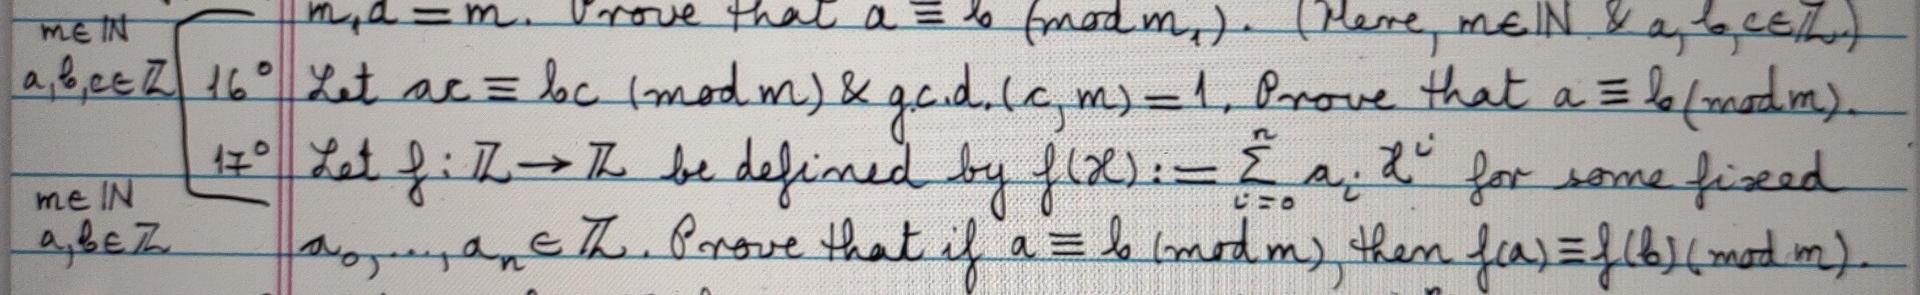 m₁d = m. Prove that a ≡ b (mod m₁). (Here, m∈ℕ & a, b, c∈ℤ.)
m∈ℕ
a,b,c∈ℤ 16° Let ac ≡ bc (mod m) & g.c.d.(c, m) = 1. Prove that a ≡ b (mod m).
17° Let f : ℤ → ℤ be defined by f(x) := Σⁿᵢ₌₀ aᵢ xⁱ for some fixed
m∈ℕ
a,b∈ℤ a₀, ..., aₙ ∈ ℤ. Prove that if a ≡ b (mod m), then f(a) ≡ f(b) (mod m).